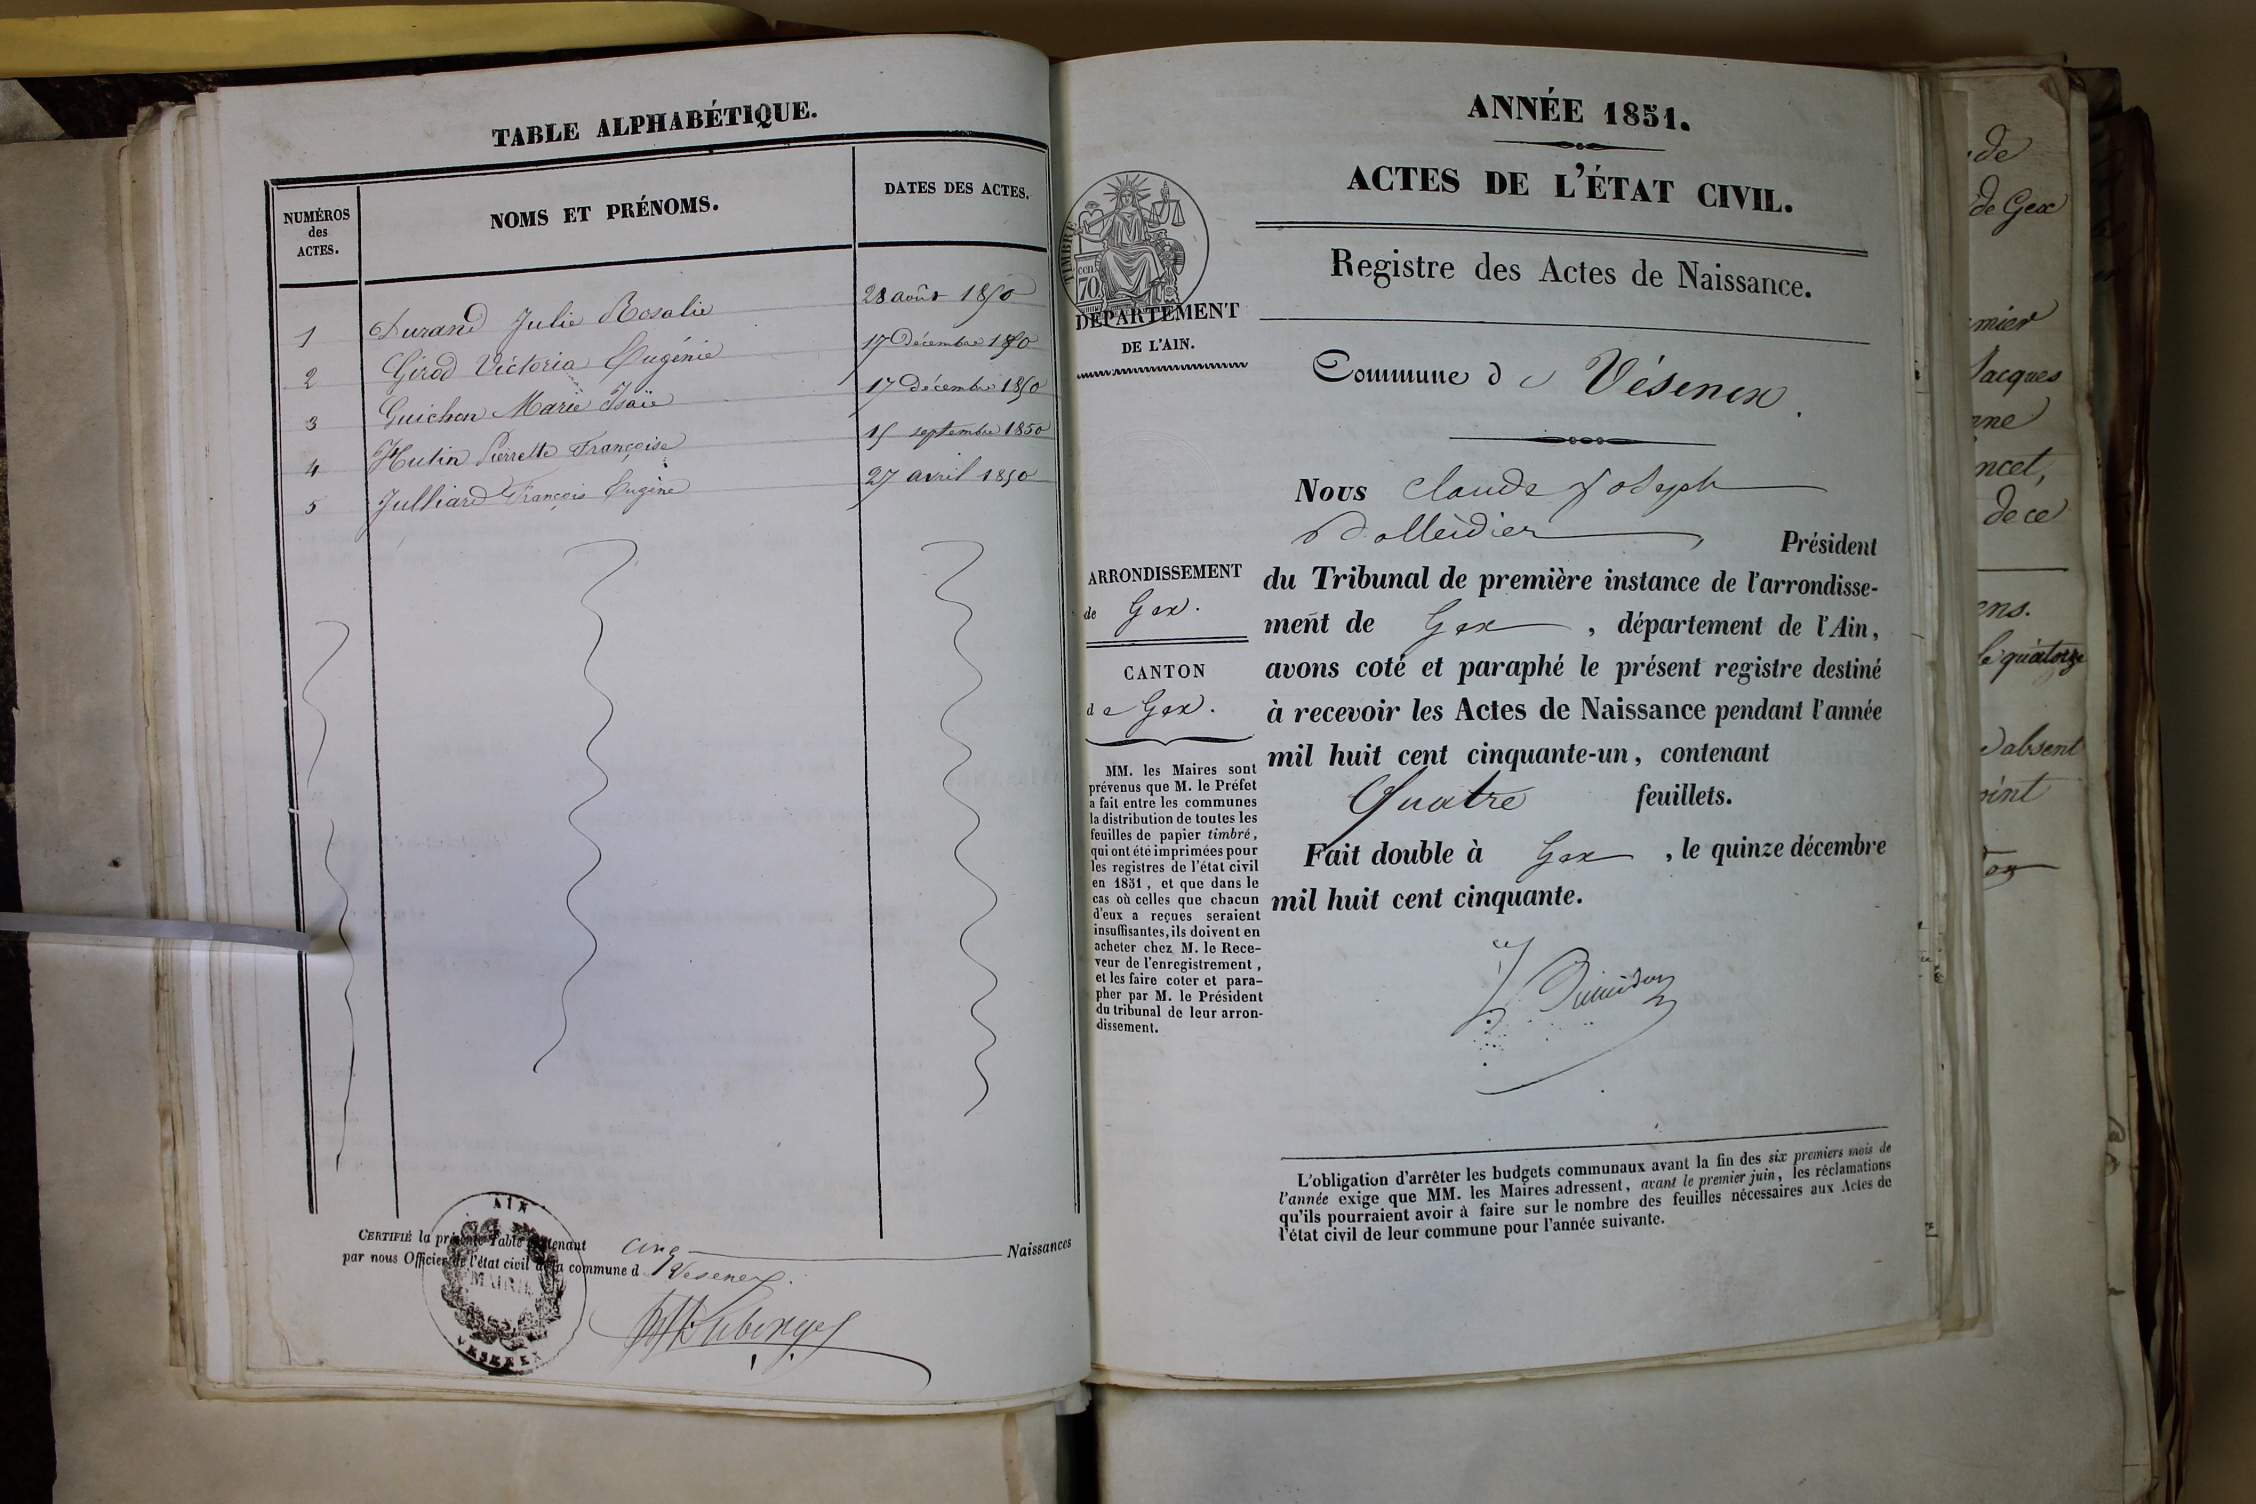 TABLE ALPHABÉTIQUE.
NUMÉROS
des
ACTES.
NOMS ET PRÉNOMS.
DATES DES ACTES.
1 Durand Julie Rosalie 28 août 1850
2 Girod Victoria Eugénie 17 Décembre 1850
3 Guichon Marie Isaïe 17 décembre 1850
4 Hutin Pierrette Françoise 15 septembre 1850
5 Julliard François Eugène 27 avril 1850
CERTIFIÉ la présente Table contenant cinq Naissances
par nous Officier de l'état civil de la commune d Vesenex.
AIN
MAIRIE
VESENEX
ANNÉE 1851.
ACTES DE L'ÉTAT CIVIL.
Registre des Actes de Naissance.
TIMBRE
70 cen.
DÉPARTEMENT
DE L'AIN.
Commune de Vésenex.
Nous Claude Joseph
Président
du Tribunal de première instance de l'arrondisse-
ment de Gex, département de l'Ain,
avons coté et paraphé le présent registre destiné
à recevoir les Actes de Naissance pendant l'année
mil huit cent cinquante-un, contenant
Quatre feuillets.
Fait double à Gex, le quinze décembre
mil huit cent cinquante.
ARRONDISSEMENT
de Gex.
CANTON
de Gex.
MM. les Maires sont
prévenus que M. le Préfet
a fait entre les communes
la distribution de toutes les
feuilles de papier timbré,
qui ont été imprimées pour
les registres de l'état civil
en 1851, et que dans le
cas où celles que chacun
d'eux a reçues seraient
insuffisantes, ils doivent en
acheter chez M. le Rece-
veur de l'enregistrement,
et les faire coter et para-
pher par M. le Président
du tribunal de leur arron-
dissement.
L'obligation d'arrêter les budgets communaux avant la fin des six premiers mois de
l'année exige que MM. les Maires adressent, avant le premier juin, les réclamations
qu'ils pourraient avoir à faire sur le nombre des feuilles nécessaires aux Actes de
l'état civil de leur commune pour l'année suivante.
de
de Gex
Jacques
de ce
le quatorze
absent